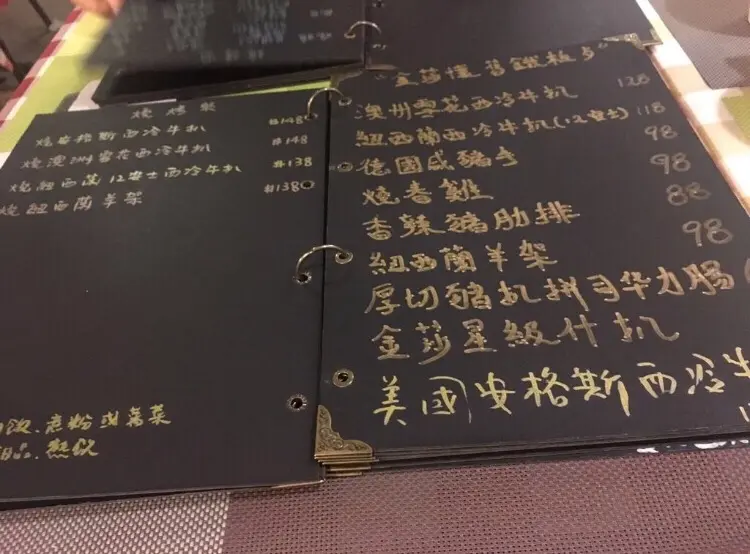 燒烤餐
燒安格斯西冷牛扒 #148
燒澳洲雪花西冷牛扒 #148
燒紐西蘭12安士西冷牛扒 #138
燒紐西蘭羊架 #138
煮粉或蔬菜
熱飲
"金莎懷舊鐵板"
澳州雪花西冷牛扒 128
紐西蘭西冷牛扒(12安士) 118
德國咸豬手 98
燒春雞 98
香辣豬肋排 88
紐西蘭羊架 98
厚切豬扒拼司华力腸
金莎星級什扒
美國安格斯西冷牛